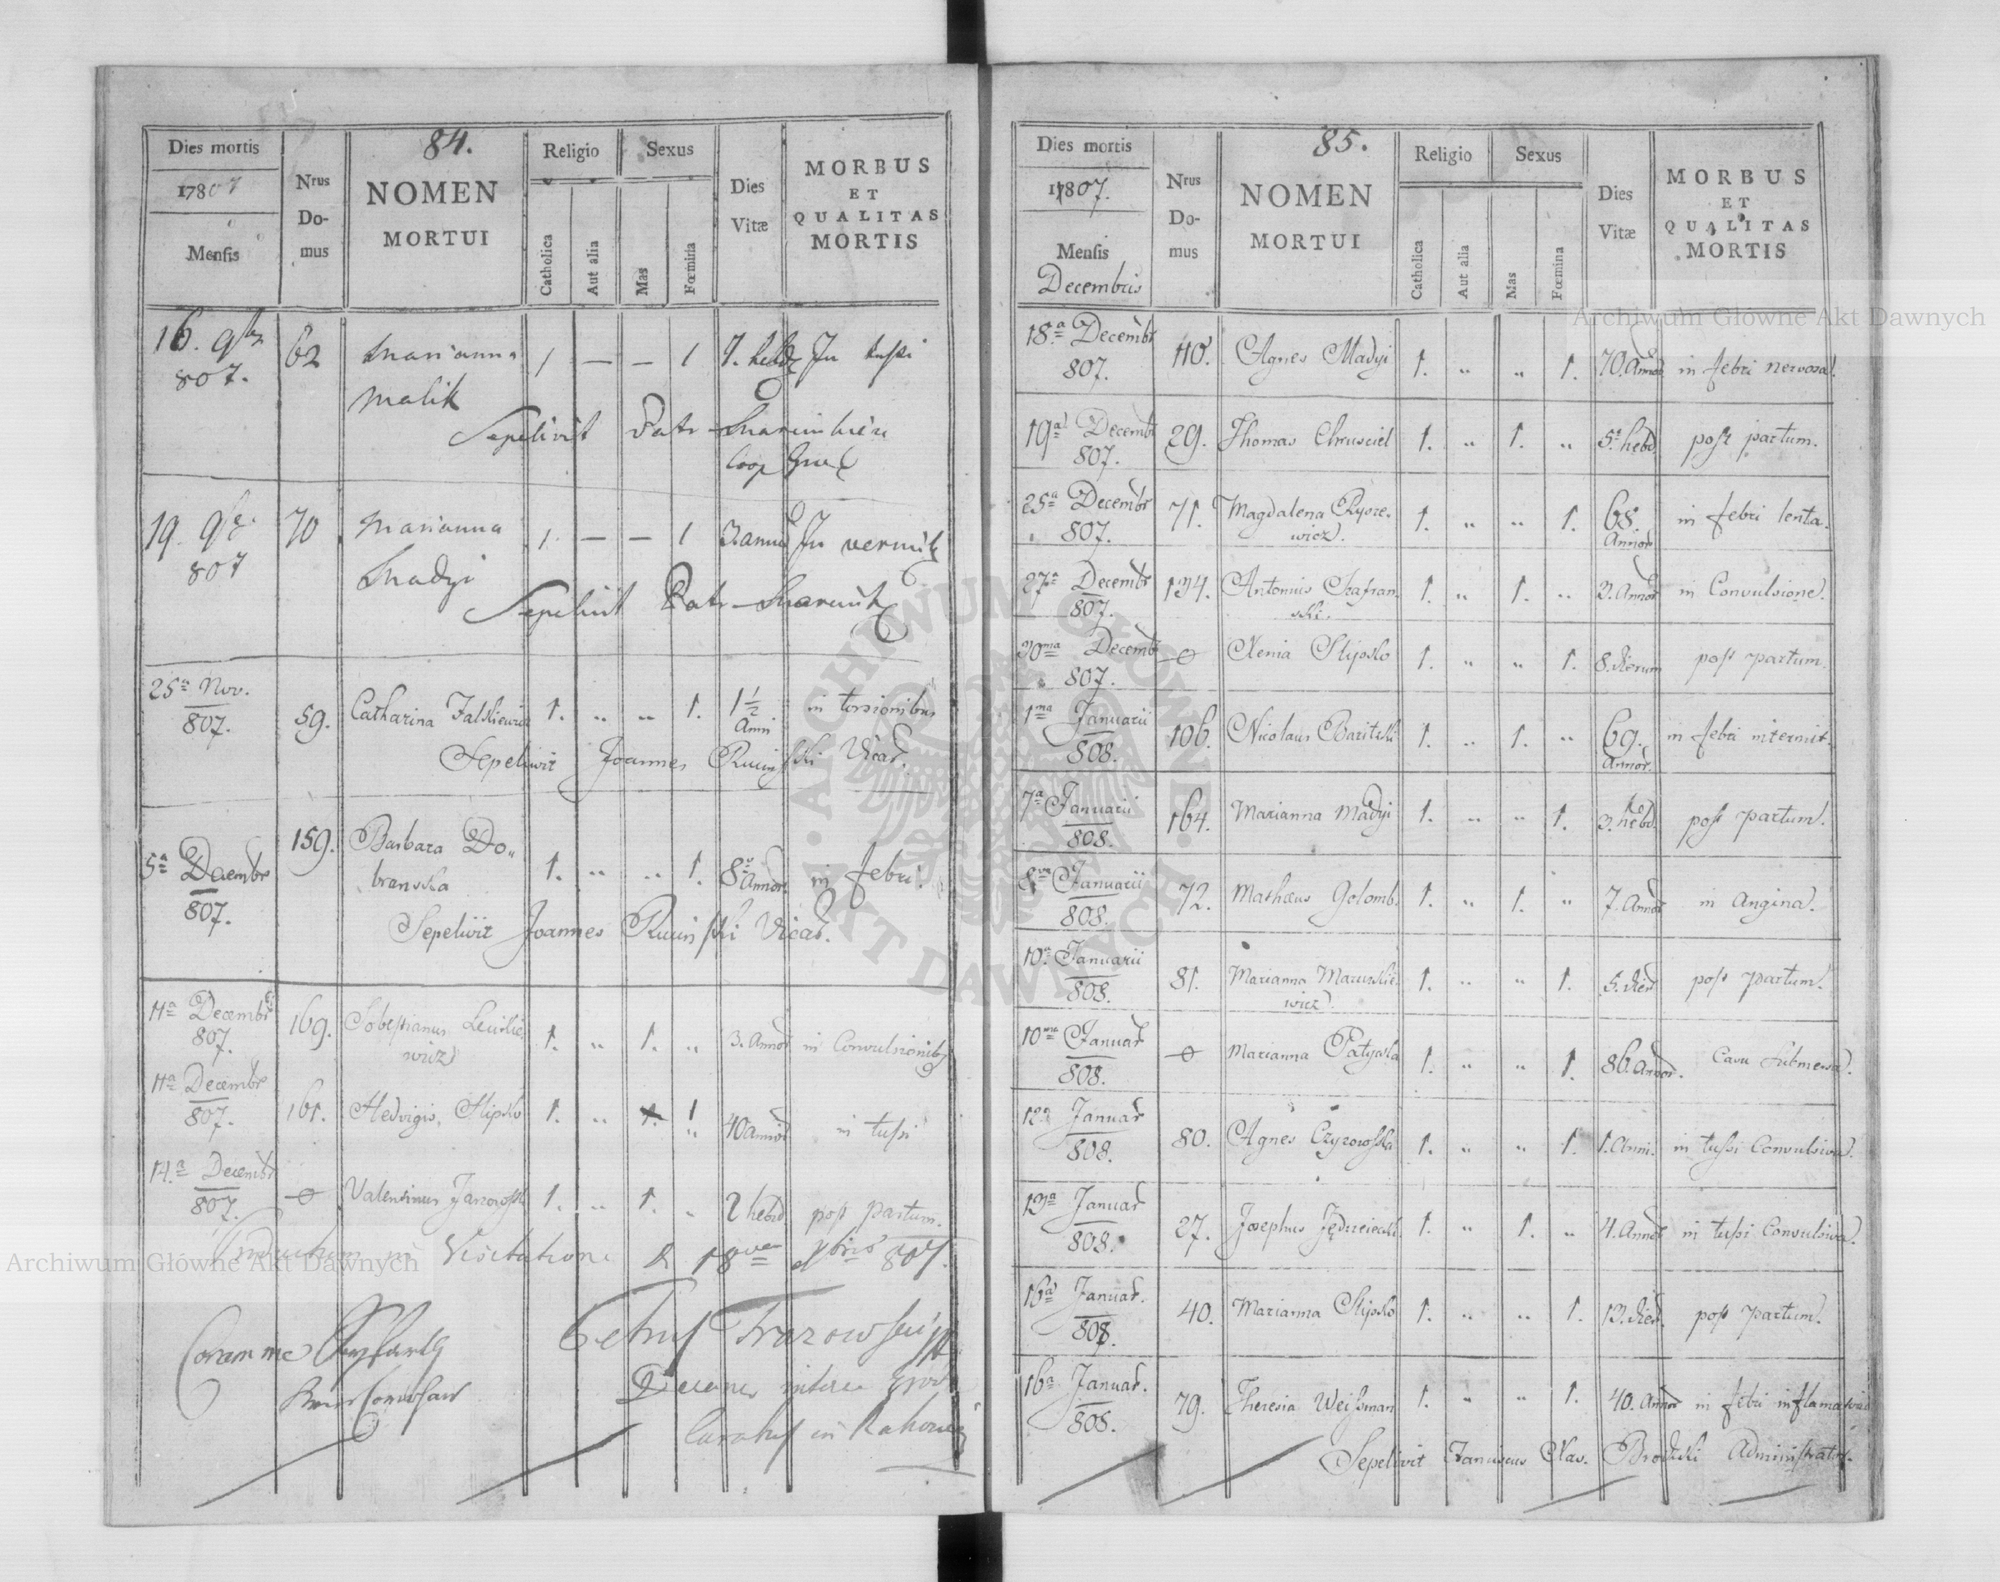 84.
Dies mortis
1807
Mensis
Nrus
Do-
mus
NOMEN
MORTUI
Religio
Catholica
Aut alia
Sexus
Mas
Fœmina
Dies
Vitæ
MORBUS
ET
QUALITAS
MORTIS
16. 9br
807.
62
Marianna
Malik
1 — — 1
In tussi
Sepelivit
19. 9br
807
70
Marianna
Madyi
1. — — 1
Sepelivit
25ª Nov.
807.
59.
Catharina Falskiewicz
1. „ „ 1.
1½
Anni
in torsionibus
Sepelivit Joannes Rucinski Vicar.
5ª Decembr
807.
159.
Barbara Do„
branska
1. „ „ 1.
8 Annor.
in febri.
Sepelivit Joannes Rucinski Vicar.
11ª Decembr
807.
169.
1. „ 1. „
3. Annor
in Convulsionibus
11ª Decembr
807.
161.
Hedvigis Slipko
1. „ 1
40 annor
in tussi
14.ª Decembr
807.
Valentinus
1. „ 1. „
2 hebd.
post partum.
Visitatione
807.
Coram me
Petrus
Decanus
Curatus in
85.
Dies mortis
1807.
Mensis
Decembris
Nrus
Do-
mus
NOMEN
MORTUI
Religio
Catholica
Aut alia
Sexus
Mas
Fœmina
Dies
Vitæ
MORBUS
ET
QUALITAS
MORTIS
18.ª Decembr
807.
110.
Agnes Madyi
1. „ „ 1.
70. Annor
in febri nervosa.
19ª Decembr
807.
29.
Thomas Chrusciel
1. „ 1. „
5. hebd.
post partum.
25ª Decembr
807.
71.
Magdalena Ryore-
wicz.
1. „ „ 1.
68.
Annor
in febri lenta.
27ª Decembr
807.
134.
Antonius Szafran-
ski.
1. „ 1. „
3. Annor
in Convulsione.
30ma Decembr
807.
Xenia Slipko
1. „ „ 1.
8. dierum
post partum.
1ma Januarii
808.
106.
Nicolaus Baritski
1. „ 1. „
69.
Annor.
in febri intermit.
7ª Januarii
808.
164.
Marianna Madyi
1. „ „ 1.
3. hebd.
post partum.
8va Januarii
808.
72.
Mathæus Golomb.
1. „ 1. „
7. Annor
in angina.
10ª Januarii
808.
81.
Marianna Marcinkie-
wicz.
1. „ „ 1.
5. dier
post partum.
10ma Januar
808.
Marianna
1. „ „ 1.
86. Annor.
Casu submersa.
12ª Januar
808.
80.
Agnes Czyzowska
1. „ „ 1.
1. Anni.
in tussi Convulsiva.
13ª Januar
808.
27.
Josephus
1. „ 1. „
4. Annor
in tussi Convulsiva.
16ª Januar.
808.
40.
Marianna Slipko
1. „ „ 1.
13. dier.
post partum.
16ª Januar.
808.
79.
Theresia Weissman
1. „ „ 1.
40. Annor
in febri inflamatoria
Sepelivit Franciscus Xav. Brodzki Administrator.
Archiwum Główne Akt Dawnych
Archiwum Główne Akt Dawnych
ARCHIWUM GŁÓWNE AKT DAWNYCH